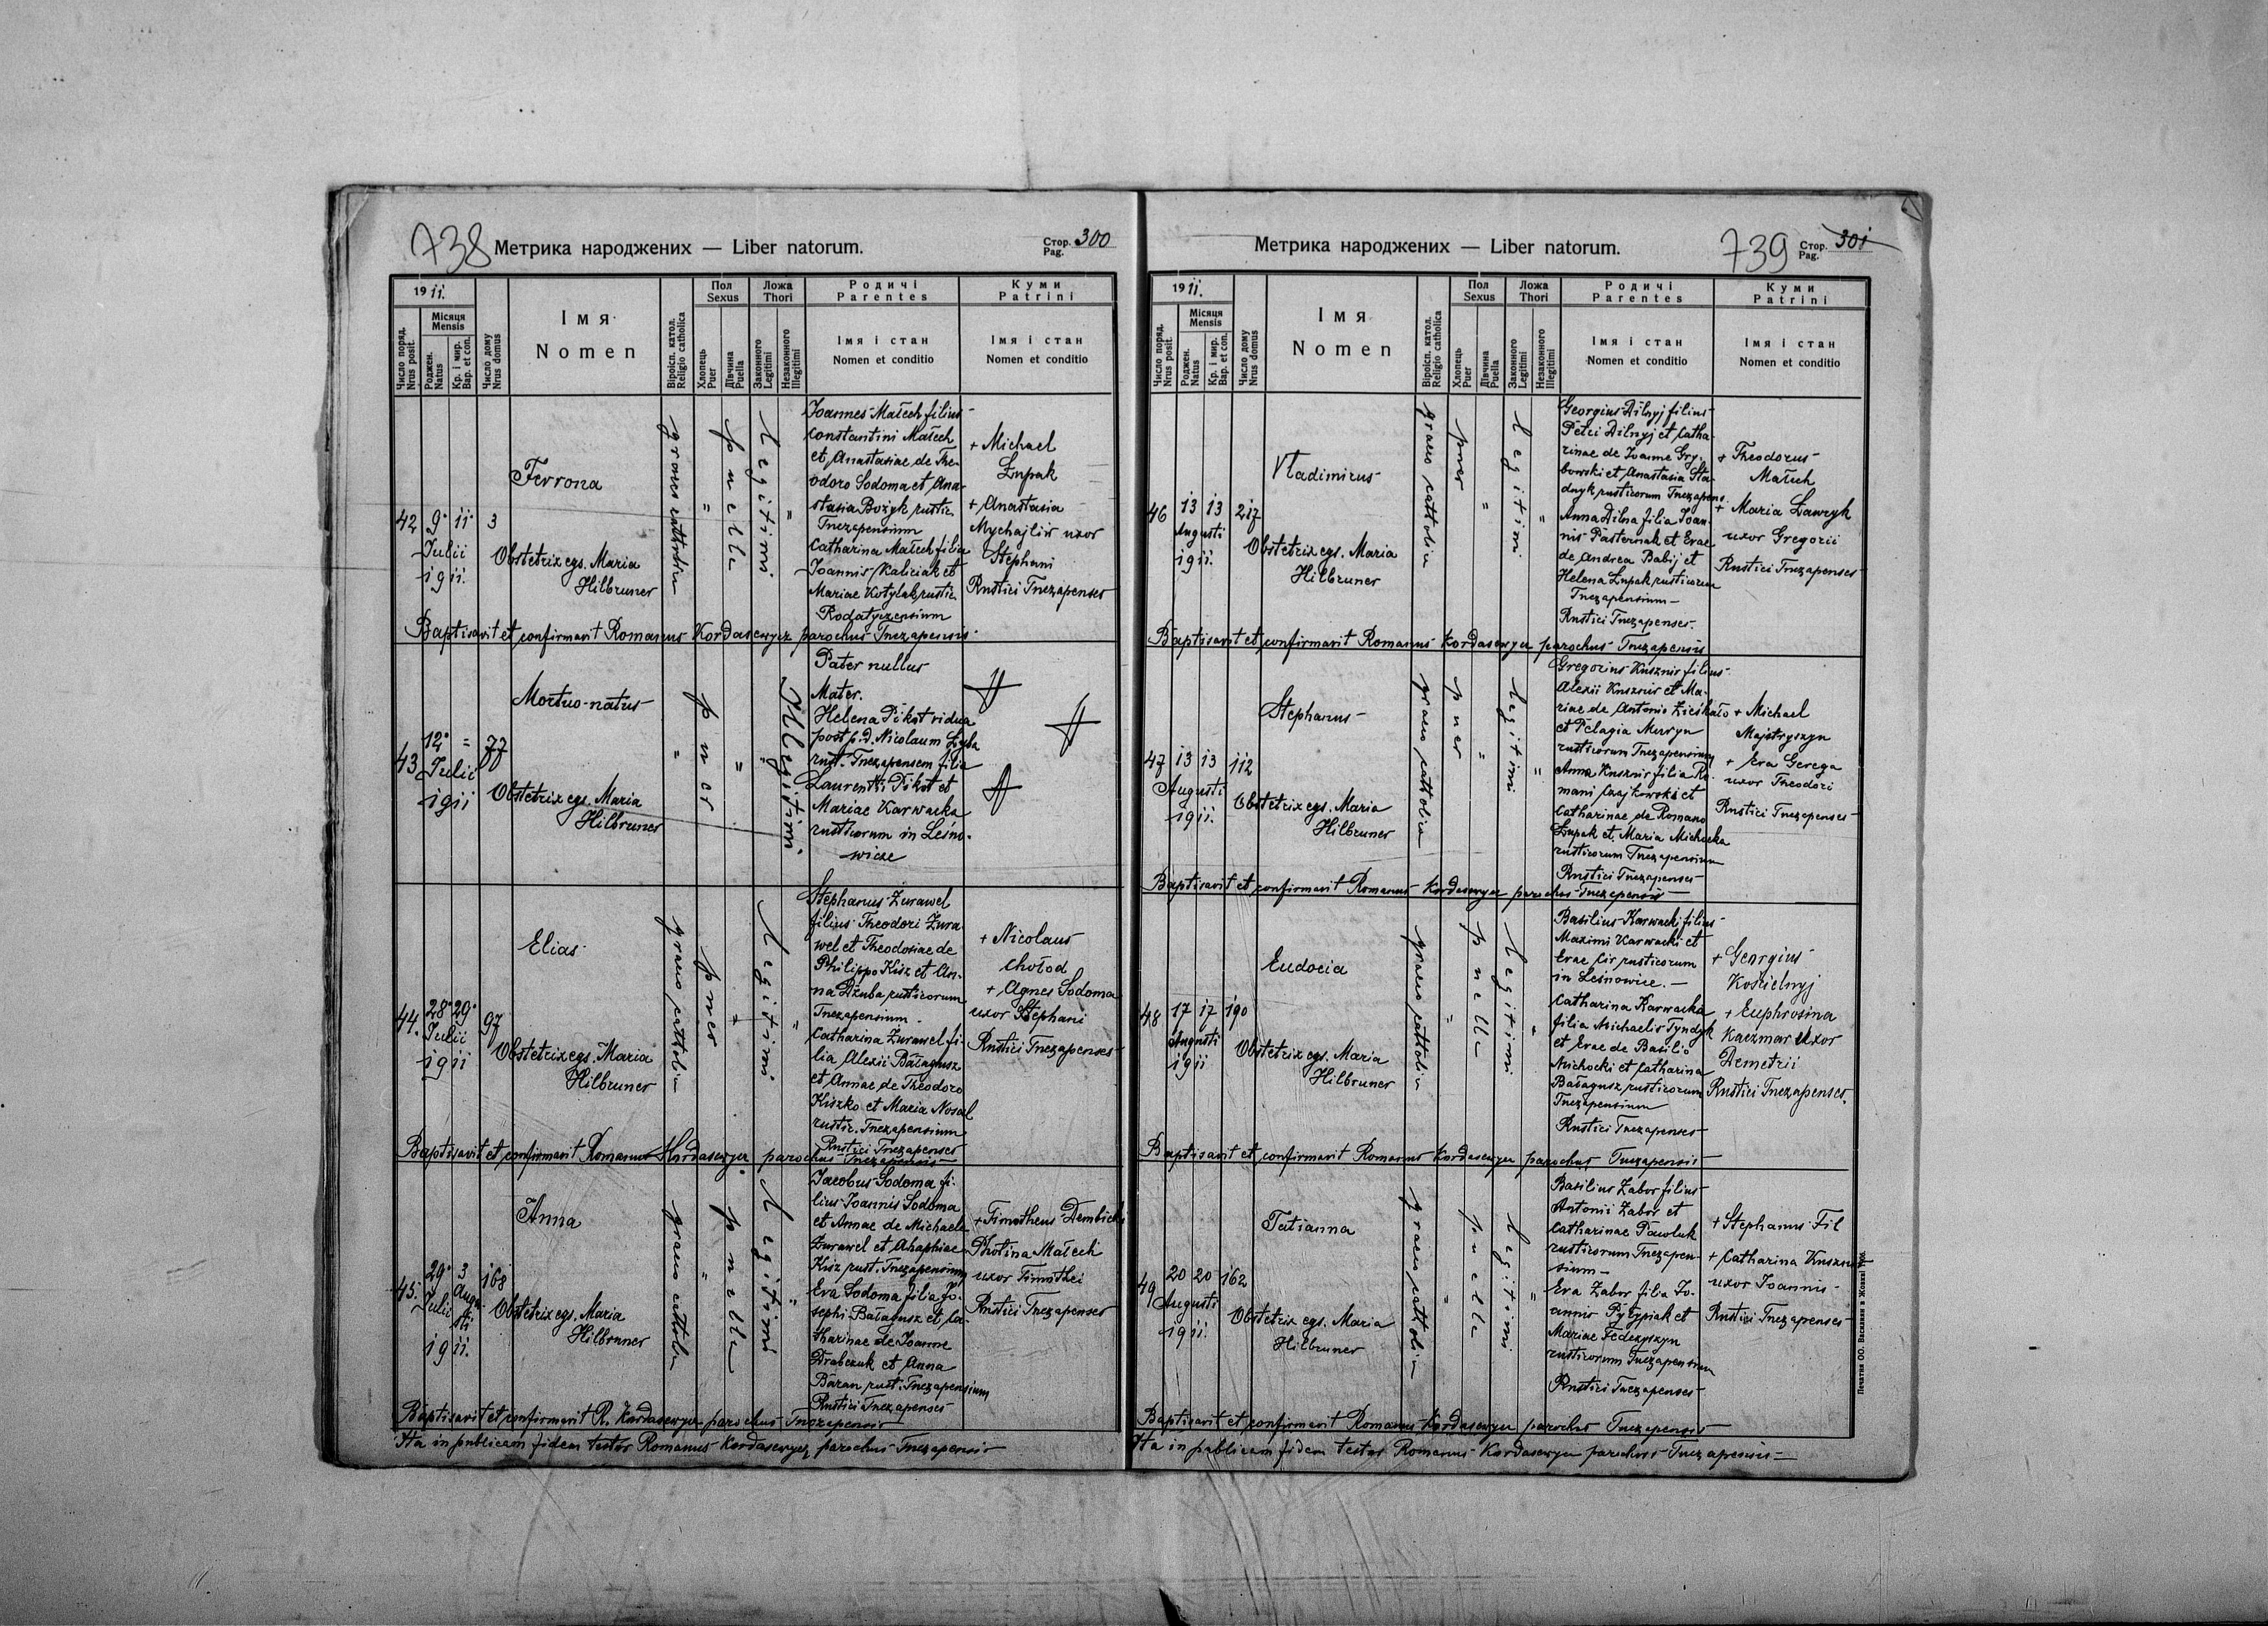 738 Метрика народжених — Liber natorum. Стор. Pag. 300
1911.
Число поряд. Nrus posit.
Місяця Mensis
Роджен. Natus
Кр. і мир. Bap. et con.
Число дому Nrus domus
Імя
Nomen
Віроісп. катол. Religio catholica
Пол Sexus
Хлопець Puer
Дівчина Puella
Ложа Thori
Законного Legitimi
Незаконного Illegitimi
Родичі Parentes
Імя і стан
Nomen et conditio
Куми Patrini
Імя і стан
Nomen et conditio
42 9 11 3
Julii
1911.
Ferrona
Obstetrix egs. Maria
Hilbruner
graeco cattolica
puella
Legitimi
Joannes Małech filius
Constantini Małech
et Anastasiae de The-
odoro Sodoma et Ana-
stasia Bożyk rustic.
Tnezapensium
Catharina Małech filia
Joannis Kaliciak et
Mariae Kotylak rustic.
Rodatyczensium
+ Michael
Łupak
+ Anastasia
Mychajliw uxor
Stephani
Rustici Tnezapenses
Baptisavit et confirmavit Romanus Kordasewycz parochus Tnezapensis
43 12 = 77
Julii
1911
Mortuo-natus
Obstetrix egs. Maria
Hilbruner
puer
Illegitimi
Pater nullus
Mater.
Helena Pikot vidua
post p.d. Nicolaum
rust. Tnezapensem filia
Laurentii Pikot et
Mariae Karwacka
rusticorum in Leśno-
wicze
44. 28 29 97
Julii
1911
Elias
Obstetrix egs. Maria
Hilbruner
graeco cattolica
puer
Legitimi
Stephanus Żurawel
filius Theodori Żura-
wel et Theodosiae de
Philippo Kisz et An-
na Dziuba rusticorum
Tnezapensium.
Catharina Żurawel fi-
lia Alexii Bałagusz
et Annae de Theodoro
Kiszko et Maria Nosal
rustic. Tnezapensium
Rustici Tnezapenses
+ Nicolaus
Chołod
+ Agnes Sodoma
uxor Stephani
Rustici Tnezapenses
Baptisavit et confirmavit Romanus Kordasewycz parochus Tnezapensis
45. 29 3 168
Julii Augusti
1911.
Anna
Obstetrix egs. Maria
Hilbruner
graeco cattolica
puella
Legitimi
Jacobus Sodoma fi-
lius Joannis Sodoma
et Annae de Michaele
Żurawel et Ahaphiae
Kisz rust. Tnezapensium
Eva Sodoma filia Jo-
sephi Bałagusz et Ca-
tharinae de Joanne
Drabczuk et Anna
Baran rust. Tnezapensium
Rustici Tnezapenses
+ Timotheus Dembicki
Photina Małech
uxor Timothei
Rustici Tnezapenses
Baptisavit et confirmavit R. Kordasewycz parochus Tnezapensis
Ita in publicam fidem testor Romanus Kordasewycz parochus Tnezapensis
Метрика народжених — Liber natorum. 739 Стор. Pag. 301
1911.
Число поряд. Nrus posit.
Місяця Mensis
Роджен. Natus
Кр. і мир. Bap. et con.
Число дому Nrus domus
Імя
Nomen
Віроісп. катол. Religio catholica
Пол Sexus
Хлопець Puer
Дівчина Puella
Ложа Thori
Законного Legitimi
Незаконного Illegitimi
Родичі Parentes
Імя і стан
Nomen et conditio
Куми Patrini
Імя і стан
Nomen et conditio
46 13 13 217
Augusti
1911.
Vladimirus
Obstetrix egs. Maria
Hilbruner
graeco cattolica
puer
Legitimi
Georgius Dilnyj filius
Petri Dilnyj et Catha-
rinae de Joanne Gry-
bowski et Anastasia Sta-
dnyk rusticorum Tnezapens.
Anna Dilna filia Joan-
nis Pasternak et Evae
de Andrea Babij et
Helena Łupak rusticorum
Tnezapensium
Rustici Tnezapenses.
+ Theodorus
Małech
+ Maria Ławryk
uxor Gregorii
Rustici Tnezapenses
Baptisavit et confirmavit Romanus Kordasewycz parochus Tnezapensis
47 13 13 112
Augusti
1911.
Stephanus
Obstetrix egs. Maria
Hilbruner
graeco cattolica
puer
Legitimi
Gregorius Kusznir filius
Alexii Kusznir et Ma-
riae de Antonio
et Pelagia Mưryn
rusticorum Tnezapensium
Anna Kusznir filia Ro-
mani Czajkowski et
Catharinae de Romano
Łupak et Maria Michocka
rusticorum Tnezapensium
Rustici Tnezapenses
+ Michael
Majstryszyn
+ Eva Gerega
uxor Theodori
Rustici Tnezapenses
Baptisavit et confirmavit Romanus Kordasewycz parochus Tnezapensis
48 17 17 190
Augusti
1911
Eudocia
Obstetrix egs. Maria
Hilbruner
graeco cattolica
puella
Legitimi
Basilius Karwacki filius
Maximi Karwacki et
Evae Cir rusticorum
in Leśnowice.
Catharina Karwacka
filia Michaelis Tyndyk
et Evae de Basilio
Michocki et Catharina
Bałagusz rusticorum
Tnezapensium
Rustici Tnezapenses
+ Georgius
Kościelnyj
+ Euphrosina
Kaczmar uxor
Demetrii
Rustici Tnezapenses.
Baptisavit et confirmavit Romanus Kordasewycz parochus Tnezapensis
49 20 20 162
Augusti
1911.
Tatianna
Obstetrix egs. Maria
Hilbruner
graeco cattolica
puella
Legitimi
Basilius Zabor filius
Antonii Zabor et
Catharinae Pawluk
rusticorum Tnezapen-
sium
Eva Zabor filia Jo-
annis Pyłypiak et
Mariae Fedczyszyn
rusticorum Tnezapensium
Rustici Tnezapenses
+ Stephanus Fil
+ Catharina Kusznir
uxor Joannis
Rustici Tnezapenses
Baptisavit et confirmavit Romanus Kordasewycz parochus Tnezapensis
Ita in publicam fidem testor Romanus Kordasewycz parochus Tnezapensis
Печатня ОО. Василиян в Жовкві